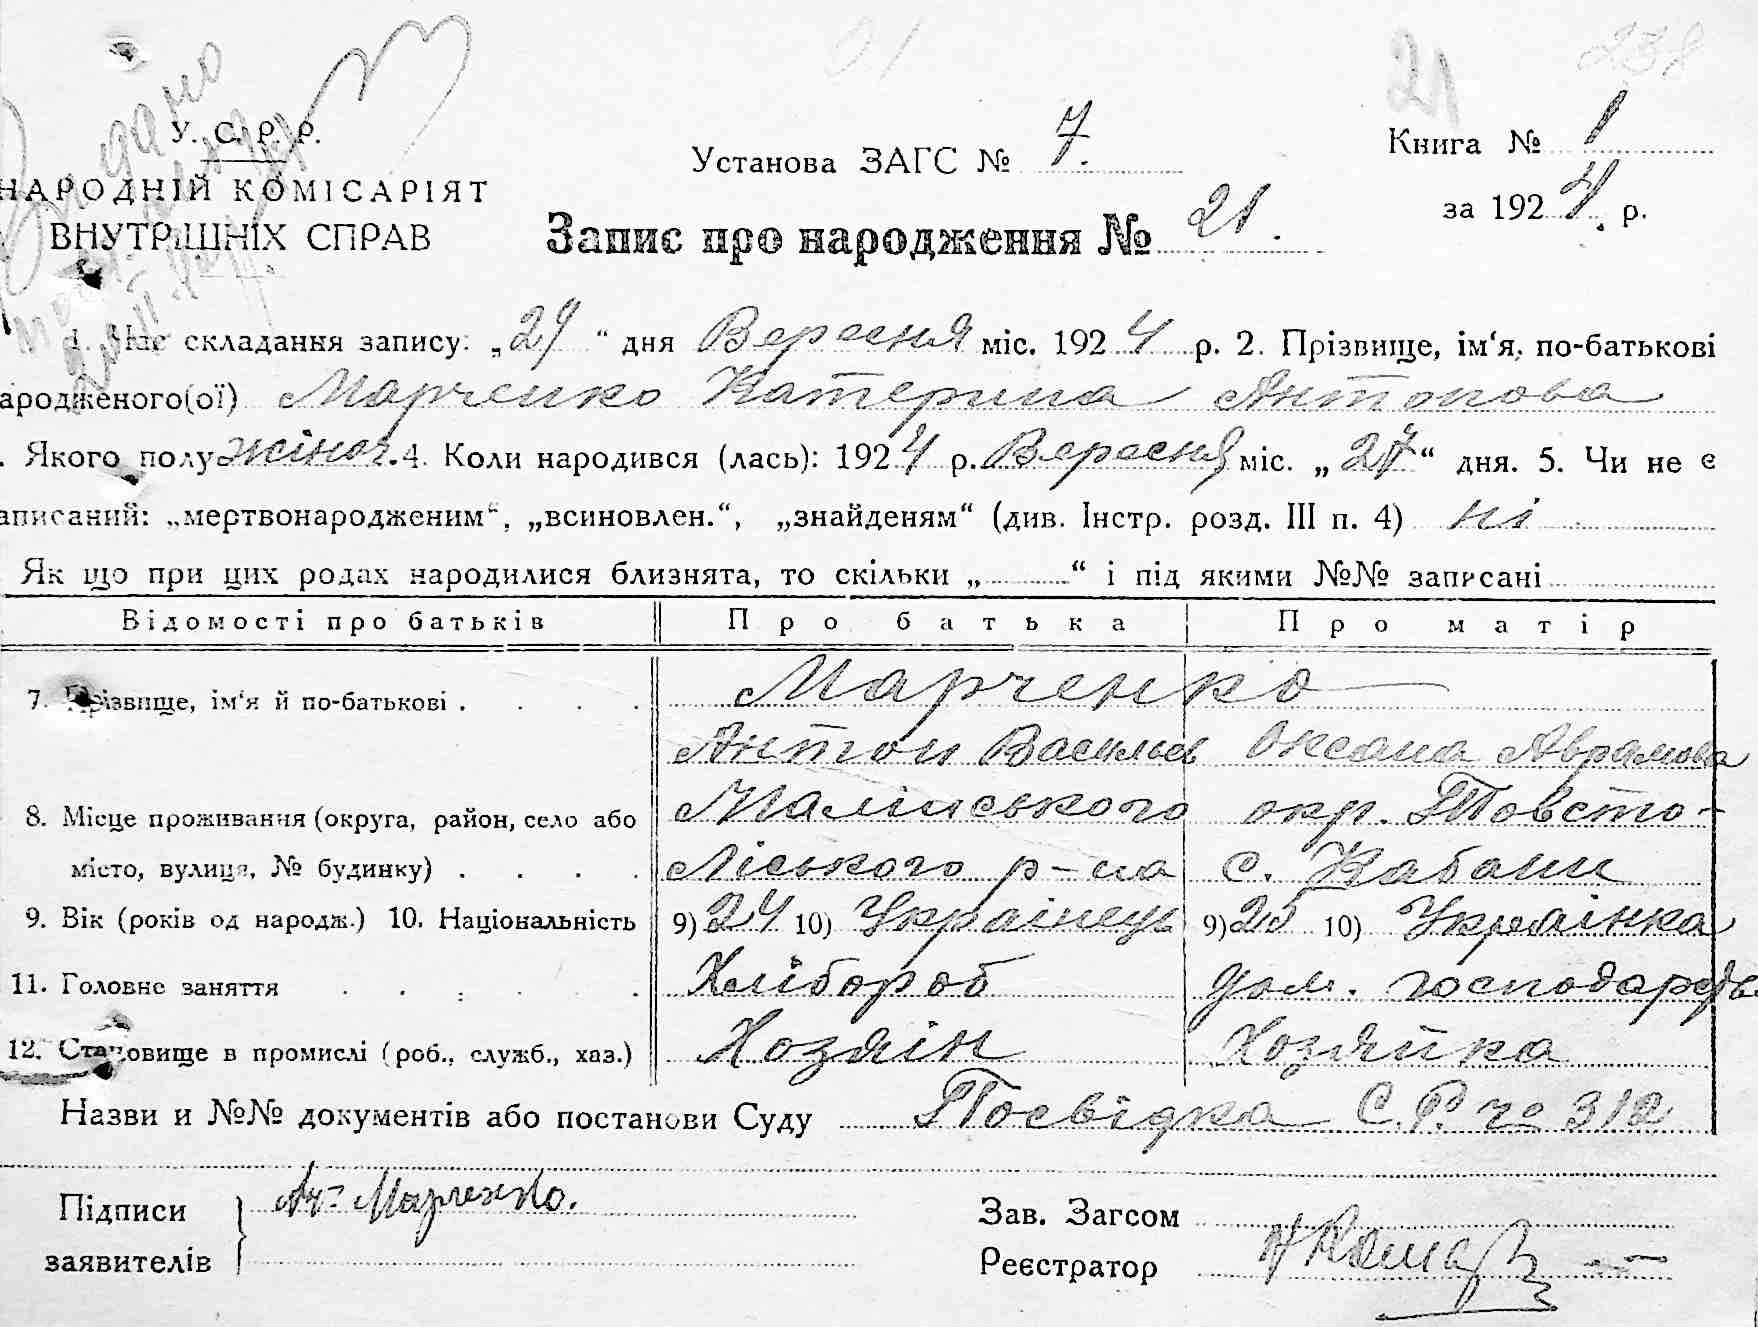 21 238
У. С. Р. Р.
НАРОДНІЙ КОМІСАРІЯТ
ВНУТРІШНІХ СПРАВ
Установа ЗАГС № 7.
Книга № 1
за 1924 р.
Запис про народження № 21.
1. Час складання запису: „29“ дня Вересня міс. 1924 р. 2. Прізвище, ім‘я, по-батькові
ародженого(ої) Марченко Катерина Антонова
. Якого полу жіноч. 4. Коли народився (лась): 1924 р. Вересня міс. „27“ дня. 5. Чи не є
аписаний: „мертвонародженим“, „всиновлен.“, „знайденям“ (див. Інстр. розд. III п. 4) ні
Як що при цих родах народилися близнята, то скільки „ “ і під якими №№ записані
Відомості про батьків Про батька Про матір
7. Прізвище, ім‘я й по-батькові . . . . Марченко
Антон Васильев Оксана Аврамова
8. Місце проживання (округа, район, село або Малинського окр. Товсто-
місто, вулиця, № будинку) . . . . Ліського р-на с. Кабани
9. Вік (років од народж.) 10. Національність 9) 24 10) Українець 9) 25 10) Українка
11. Головне заняття . . . . . Хлібороб дом. господарств
12. Становище в промислі (роб., служб., хаз.) Хозяїн Хозяйка
Назви и №№ документів або постанови Суду Посвідка С.Р. № 312
Підписи Ан. Марченко.
заявителів
Зав. Загсом
Реєстратор